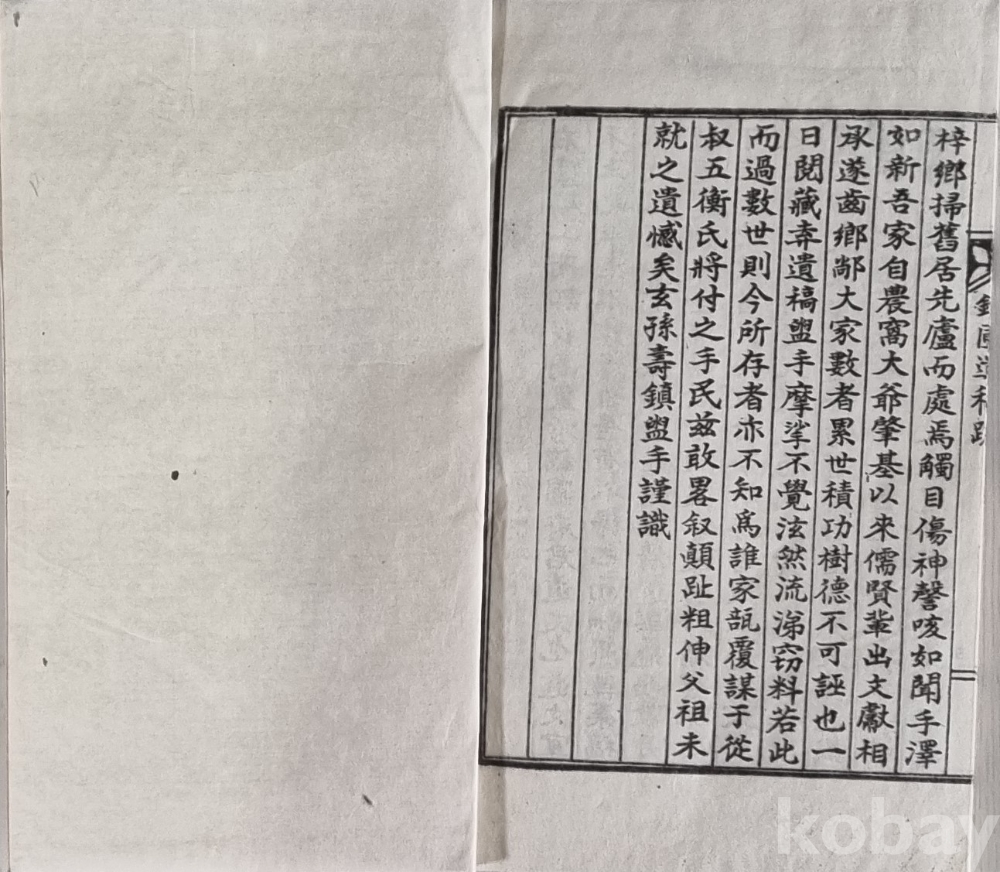 梓鄉掃舊居先廬而處焉觸目傷神謦咳如聞手澤
如新吾家自農窩大爺肇基以來儒賢輩出文獻相
承遂齒鄉鄰大家數者累世積功樹德不可誣也一
日閱藏弆遺稿盥手摩挲不覺泫然流涕窃料若此
而過數世則今所存者亦不知爲誰家瓿覆謀于從
叔五衡氏將付之手民玆敢畧叙顛趾粗伸父祖未
就之遺憾矣玄孫壽鎮盥手謹識
遺稿跋
kobay